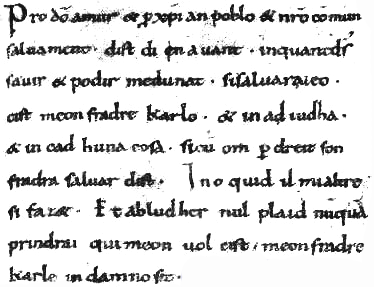 Pro dõ amur & p xp̃ian poblo & nr̃o cõmun
saluament. dist di en auant. inquantd̃s
sauir & podir medunat. sisaluaraieo.
cist meon fradre karlo. & in ad iudha.
& in cad huna cosa. sicũ om p dreit son
fradra saluar dist. Ino quid il mialtre
si faz&. Et abludher nul plaid nũquã
prindrai qui meon uol cist, meon fradre
karle in damno sit.